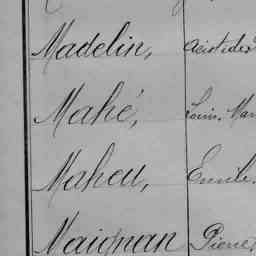 Madelin, Aristides
Mahé, Louis. Mar
Maheu, Emile.
Maignan Pierre,